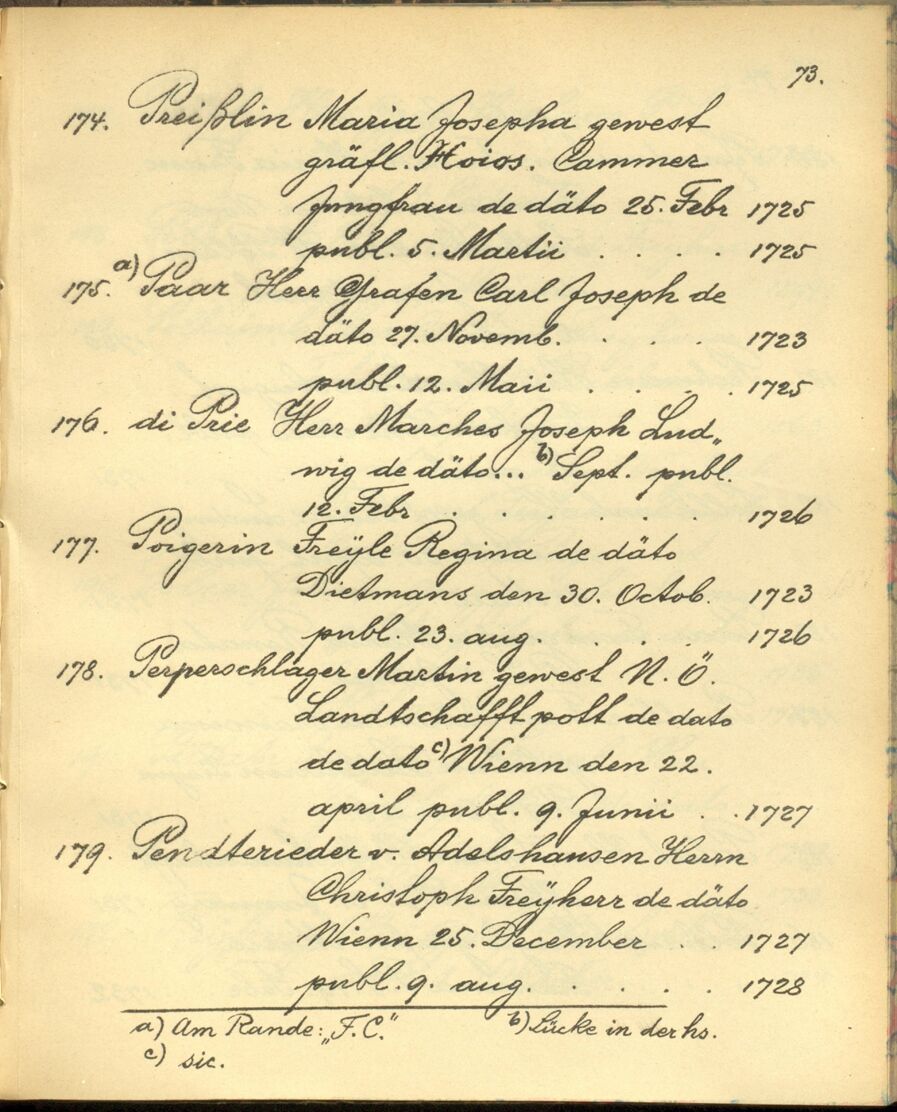 73.
174. Preißlin Maria Josepha gewest
gräfl. Hoios. Cammer
Jungfrau de däto 25. Febr 1725
publ. 5. Martii . . . . 1725
175. a) Paar Herr Grafen Carl Joseph de
däto 27. Novemb. . . . . 1723
publ. 12. Maii . . . . 1725
176. di Prie Herr Marches Joseph Lud„
wig de däto... b) Sept. publ.
12. Febr . . . . . . 1726
177. Poigerin Freÿle Regina de däto
Dietmans den 30. Octob. 1723
publ. 23. aug. . . . . 1726
178. Perperschlager Martin gewest N. Ö.
Landtschafft pott de dato
de dato c) Wienn den 22.
april publ. 9. Junii . . 1727
179. Pendterieder v. Adelshausen Herrn
Christoph Freÿherr de däto
Wienn 25. December . . 1727
publ. 9. aug. . . . . . 1728
a) Am Rande: „F.C.“ b) Lücke in der hs.
c) sic.